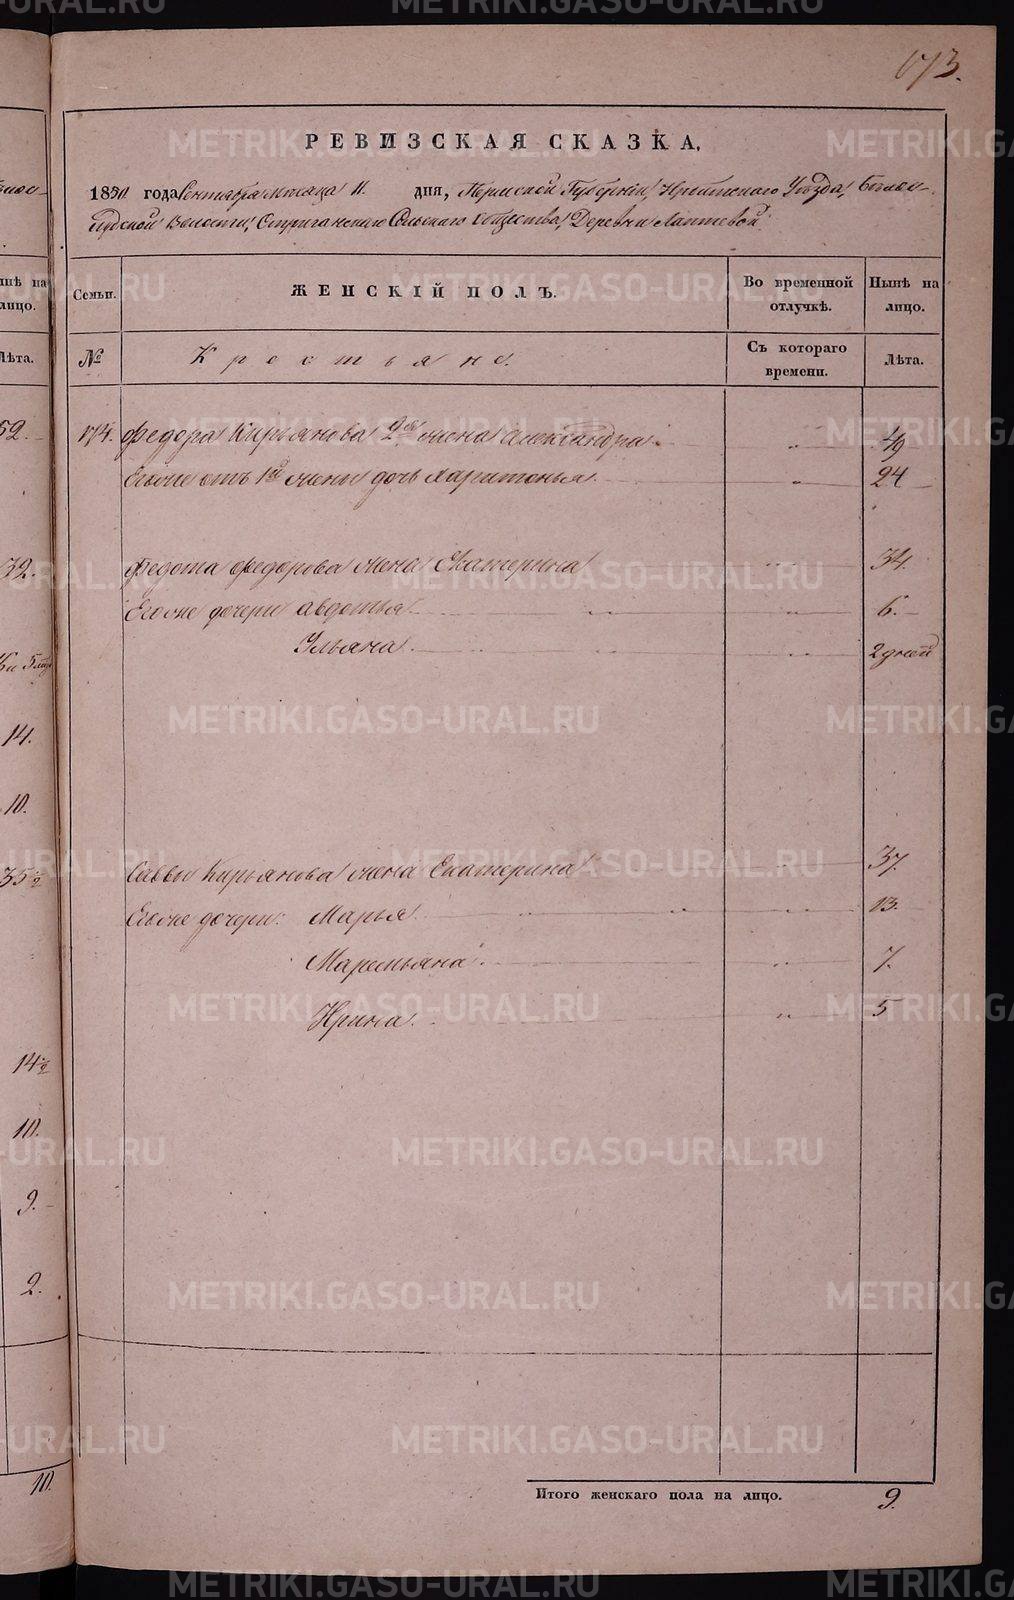 173.
РЕВИЗСКАЯ СКАЗКА.
1850 года Сентября месяца 11 дня, Пермской Губернии, Ирбитского Уезда, Белослудской Волости, Стриганского Сельскаго общества, Деревни Лаптевой.
Семьи. ЖЕНСКІЙ ПОЛЪ. Во временной отлучкѣ. Нынѣ на лицо.
№ Крестьяне. Съ котораго времени. Лѣта.
174. Федора Кирьянова 2я жена Александра 49
Его же отъ 1й жены дочь Харитонья 24
Федота Федорова жена Екатерина 34.
Его же дочери Авдотья 6.
Ульяна 2 дней
Саввы Кирьянова жена Екатерина 37.
Его же дочери: Марья 13.
Маремьяна 7.
Ирина 5
Итого женскаго пола на лицо. 9.
нѣ на
лицо.
Лѣта.
52.
32.
14.
10.
35
14
10.
9.
2.
10.
METRIKI.GASO-URAL.RU